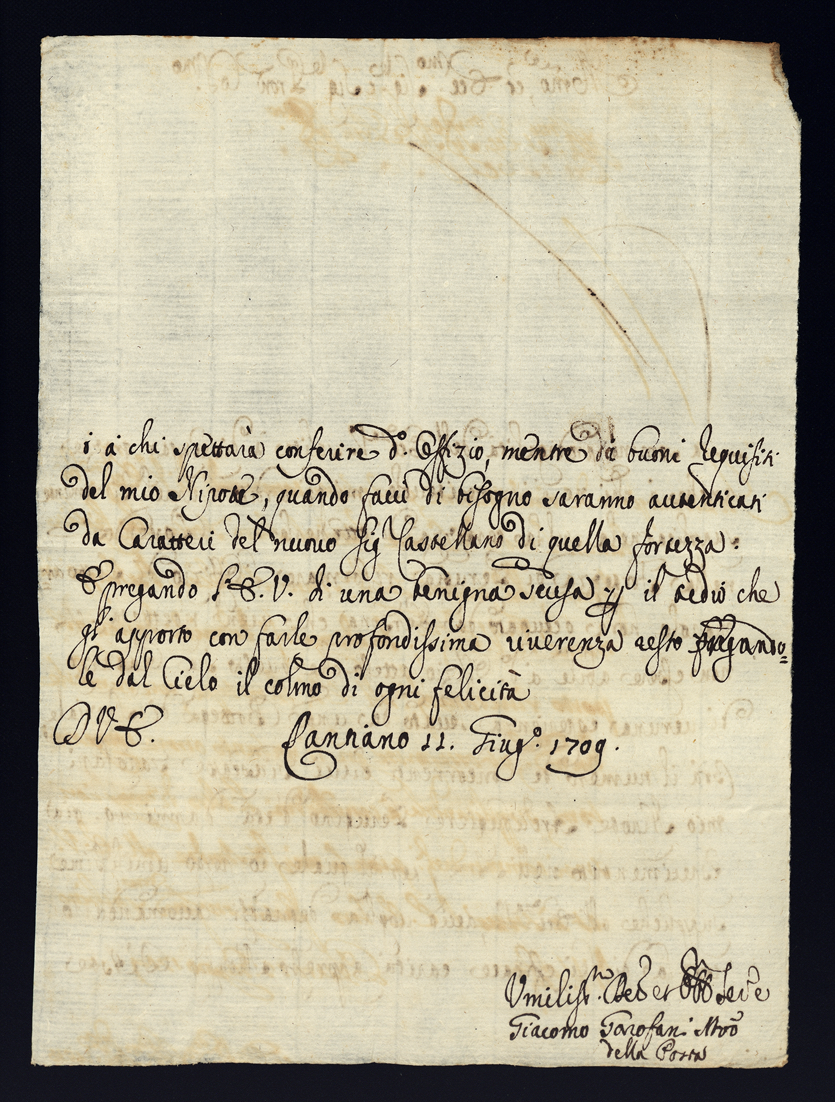 i a chi spettarà conferire d.º Offizio, mentre da buoni Requisiti
del mio Nipote, quando facci di bisogno saranno autenticati
da Caratteri del nuovo Sig.r Castellano di quella fortezza:
E pregando S.E.V. di una benigna scusa il tedio che
gl'apporto con farle profondissima riverenza resto pregando=
le dal Cielo il colmo di ogni felicità
D V E. Canziano 11. Giug.º 1709.
Umiliss.mo Serv.e
Giacomo Garofani
della Posta